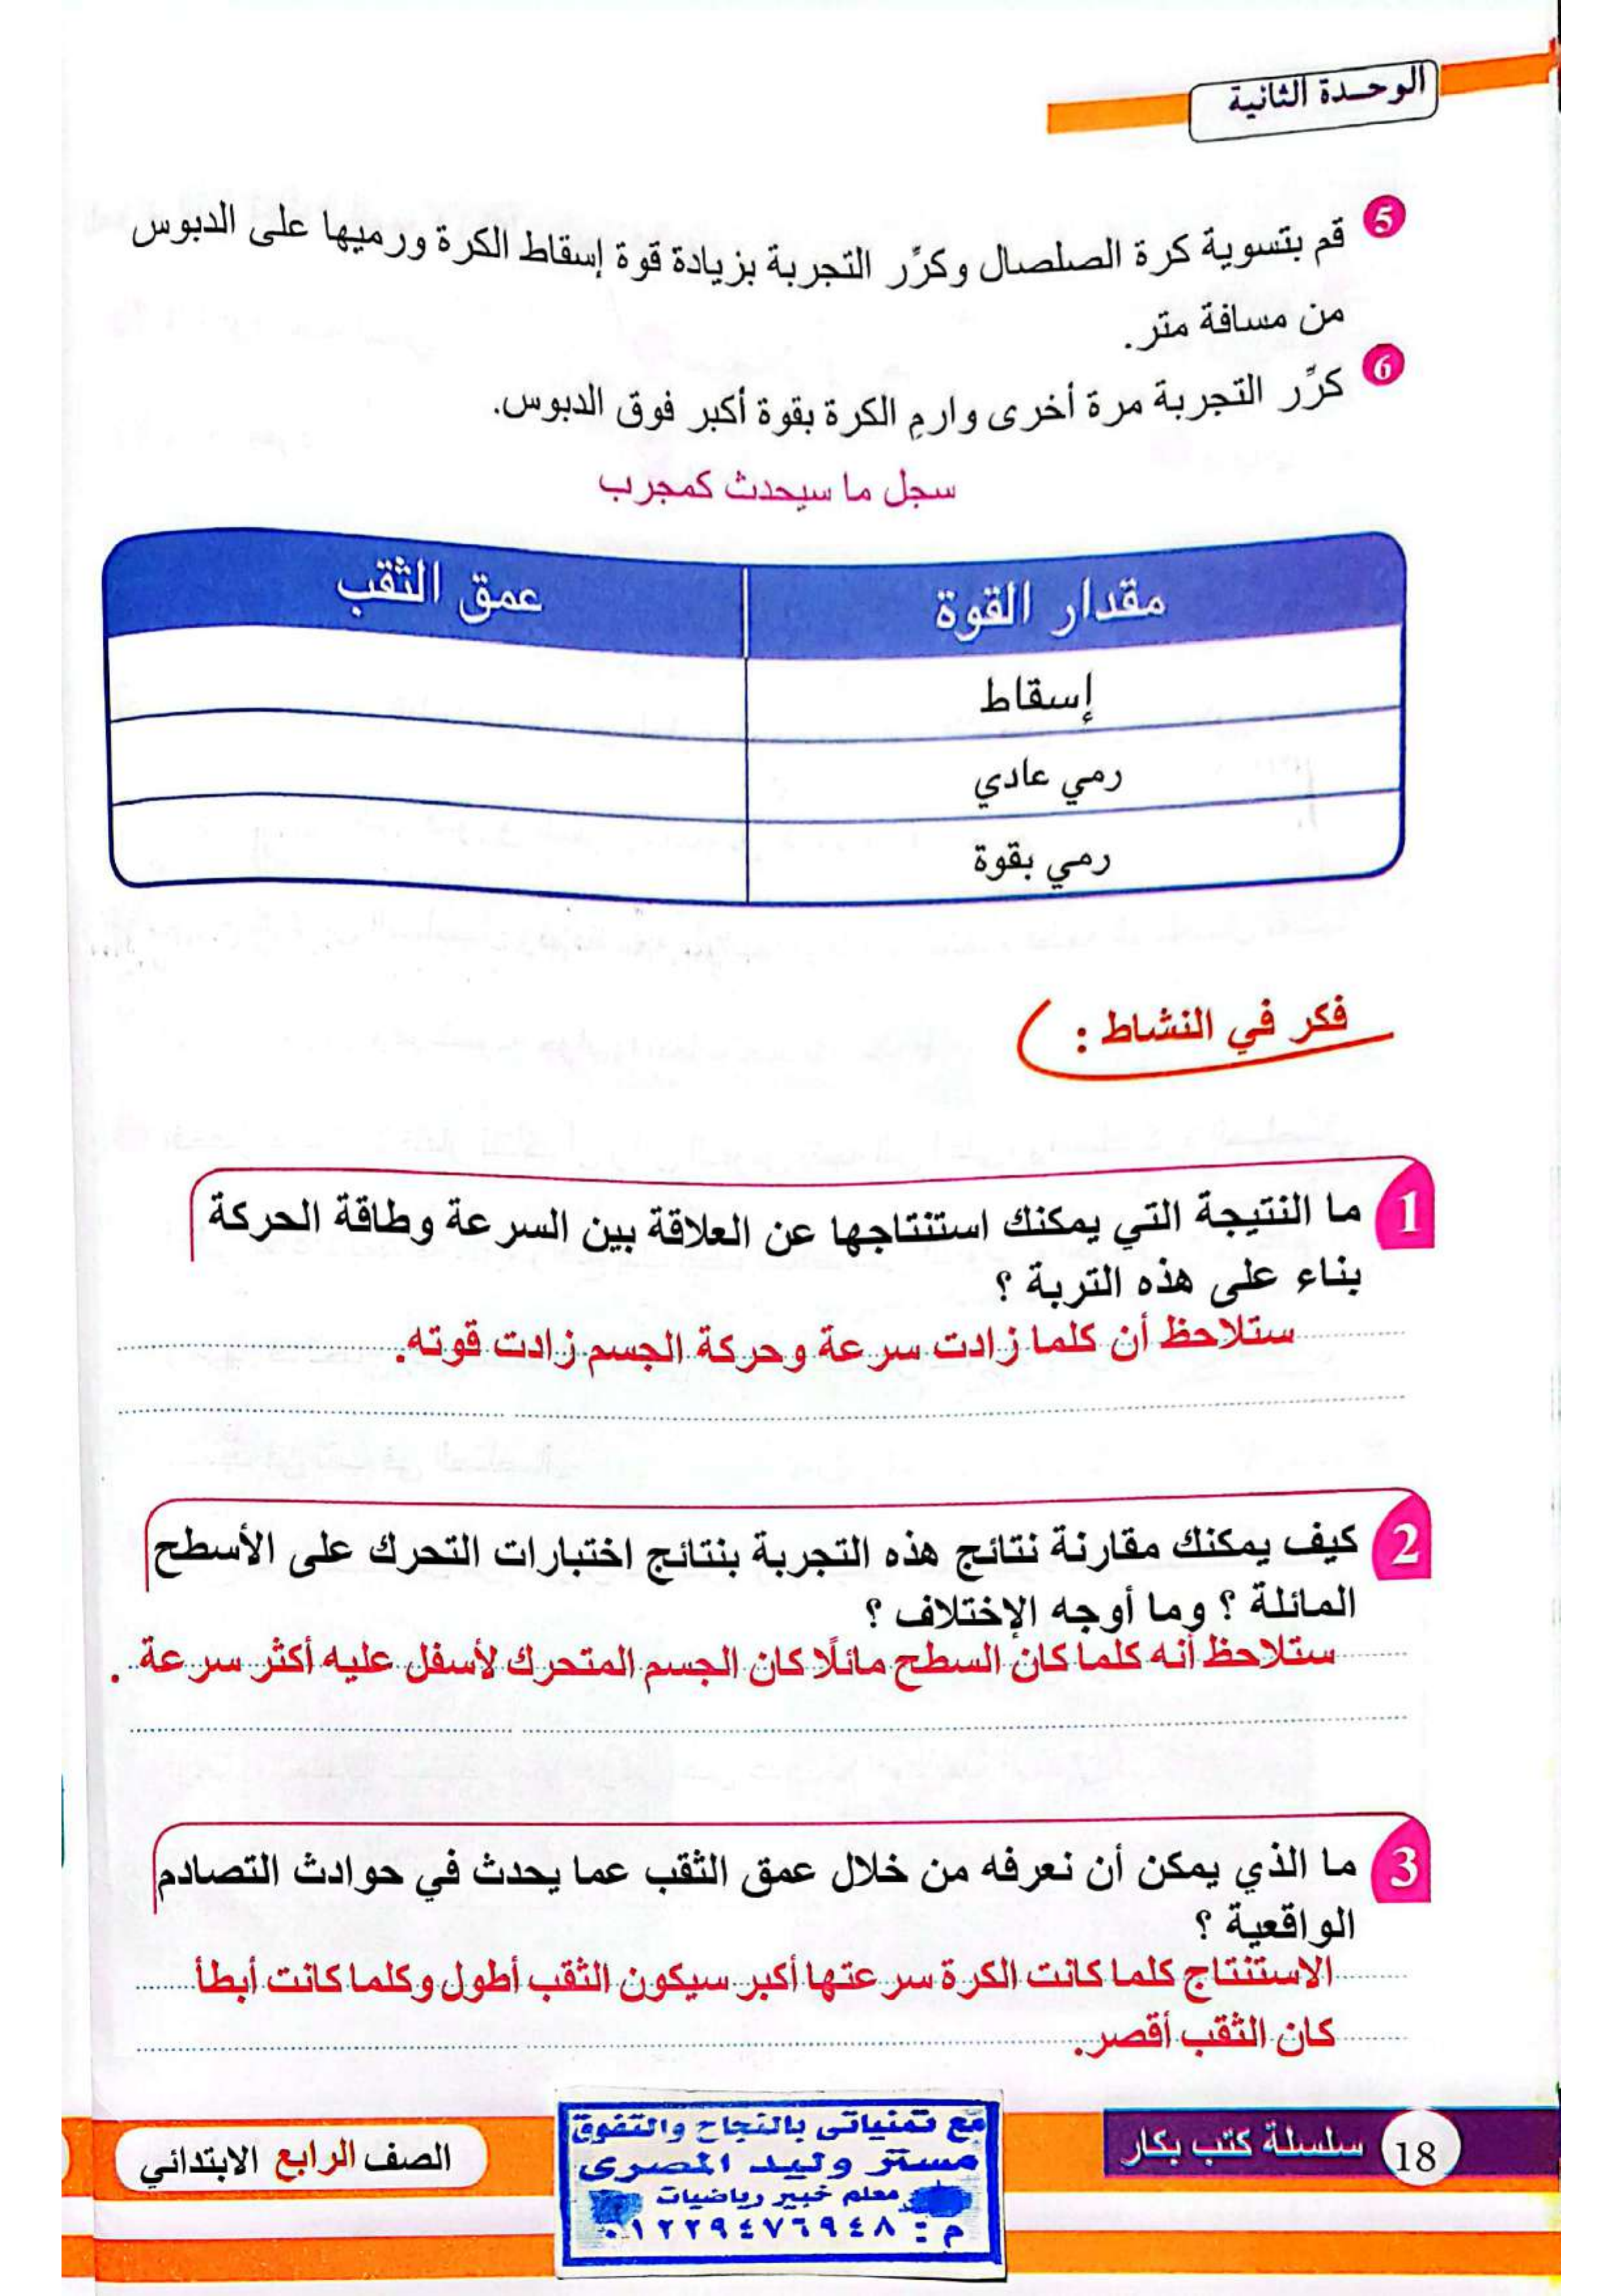 الوحدة الثانية
5 قم بتسوية كرة الصلصال وكرِّر التجربة بزيادة قوة إسقاط الكرة ورميها على الدبوس
من مسافة متر.
6 كرِّر التجربة مرة أخرى وارمِ الكرة بقوة أكبر فوق الدبوس.
سجل ما سيحدث كمجرب
مقدار القوة عمق الثقب
إسقاط
رمي عادي
رمي بقوة
فكر في النشاط :
1 ما النتيجة التي يمكنك استنتاجها عن العلاقة بين السرعة وطاقة الحركة
بناء على هذه التربة ؟
ستلاحظ أن كلما زادت سرعة وحركة الجسم زادت قوته.
2 كيف يمكنك مقارنة نتائج هذه التجربة بنتائج اختبارات التحرك على الأسطح
المائلة ؟ وما أوجه الإختلاف ؟
ستلاحظ أنه كلما كان السطح مائلًا كان الجسم المتحرك لأسفل عليه أكثر سرعة .
3 ما الذي يمكن أن نعرفه من خلال عمق الثقب عما يحدث في حوادث التصادم
الواقعية ؟
الاستنتاج كلما كانت الكرة سرعتها أكبر سيكون الثقب أطول وكلما كانت أبطأ
كان الثقب أقصر.
18 سلسلة كتب بكار
مع تمنياتى بالنجاح والتفوق
مستر وليد المصرى
معلم خبير رياضيات
م : ٠١٢٢٩٤٧٦٩٤٨
الصف الرابع الابتدائي